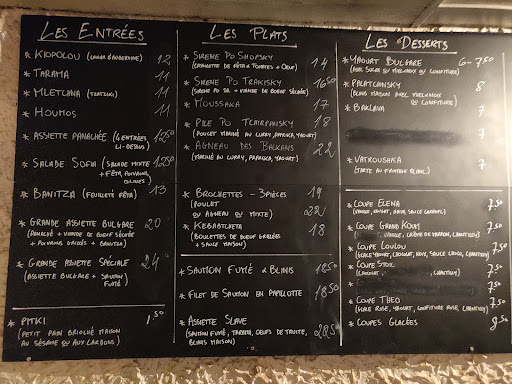 Les Entrées
* Kiopolou (caviar d'aubergine) 12
* Tarama 11
* Mletchna (tzatziki) 11
* Houmos 11
* Assiette Panachée (4 entrées 12⁵⁰
ci-dessus)
* Salade Sofia (salade mixte 12⁵⁰
+ fêta, poivrons,
olives)
* Banitza (feuilleté fêta) 13
* Grande Assiette Bulgare 20
(panaché + viande de boeuf séchée
+ poivrons grillés + banitza)
* Grande Assiette Spéciale 24
(assiette bulgare + saumon
fumé)
* Pitki 1⁵⁰
(petit pain brioché maison
au sésame ou aux lardons)
Les Plats
* Sirene Po Shopsky 14
(cassolette de fêta + tomates + oeuf)
* Sirene Po Trakisky 16⁵⁰
(sirene po sh + viande de boeuf séchée)
* Moussaka 17
* Pile Po Tchirpansky 18
(poulet mariné au curry, paprika, yaourt)
* Agneau des Balkans 22
(mariné au curry, paprika, yaourt)
* Brochettes - 3 pièces 19
(poulet
ou agneau ou mixte) 22
* Kebabtcheta 18
(boulettes de boeuf grillées
+ sauce maison)
* Saumon Fumé & Blinis 18⁵⁰
* Filet de Saumon en Papillotte 18⁵⁰
* Assiette Slave
(saumon fumé, tarama, oeufs de truite, 22⁵⁰
blinis maison)
Les Desserts
* Yaourt Bulgare 6-7⁵⁰
(avec sucre ou miel/noix ou confiture)
* Palatchinsky 8
(blinis maison avec miel/noix
ou confiture)
* Baklava 7
7
* Vatroushka 7
(tarte au fromage blanc)
* Coupe Elena 7⁵⁰
* Coupe Grand Kourt 7⁵⁰
* Coupe Loulou 7⁵⁰
(glace yaourt, chocolat, noix, sauce choco, chantilly)
* Coupe 7⁵⁰
chantilly)
7⁵⁰
* Coupe Theo 7⁵⁰
(glace rose, yaourt, confiture rose, chantilly)
* Coupes Glacées 8⁵⁰